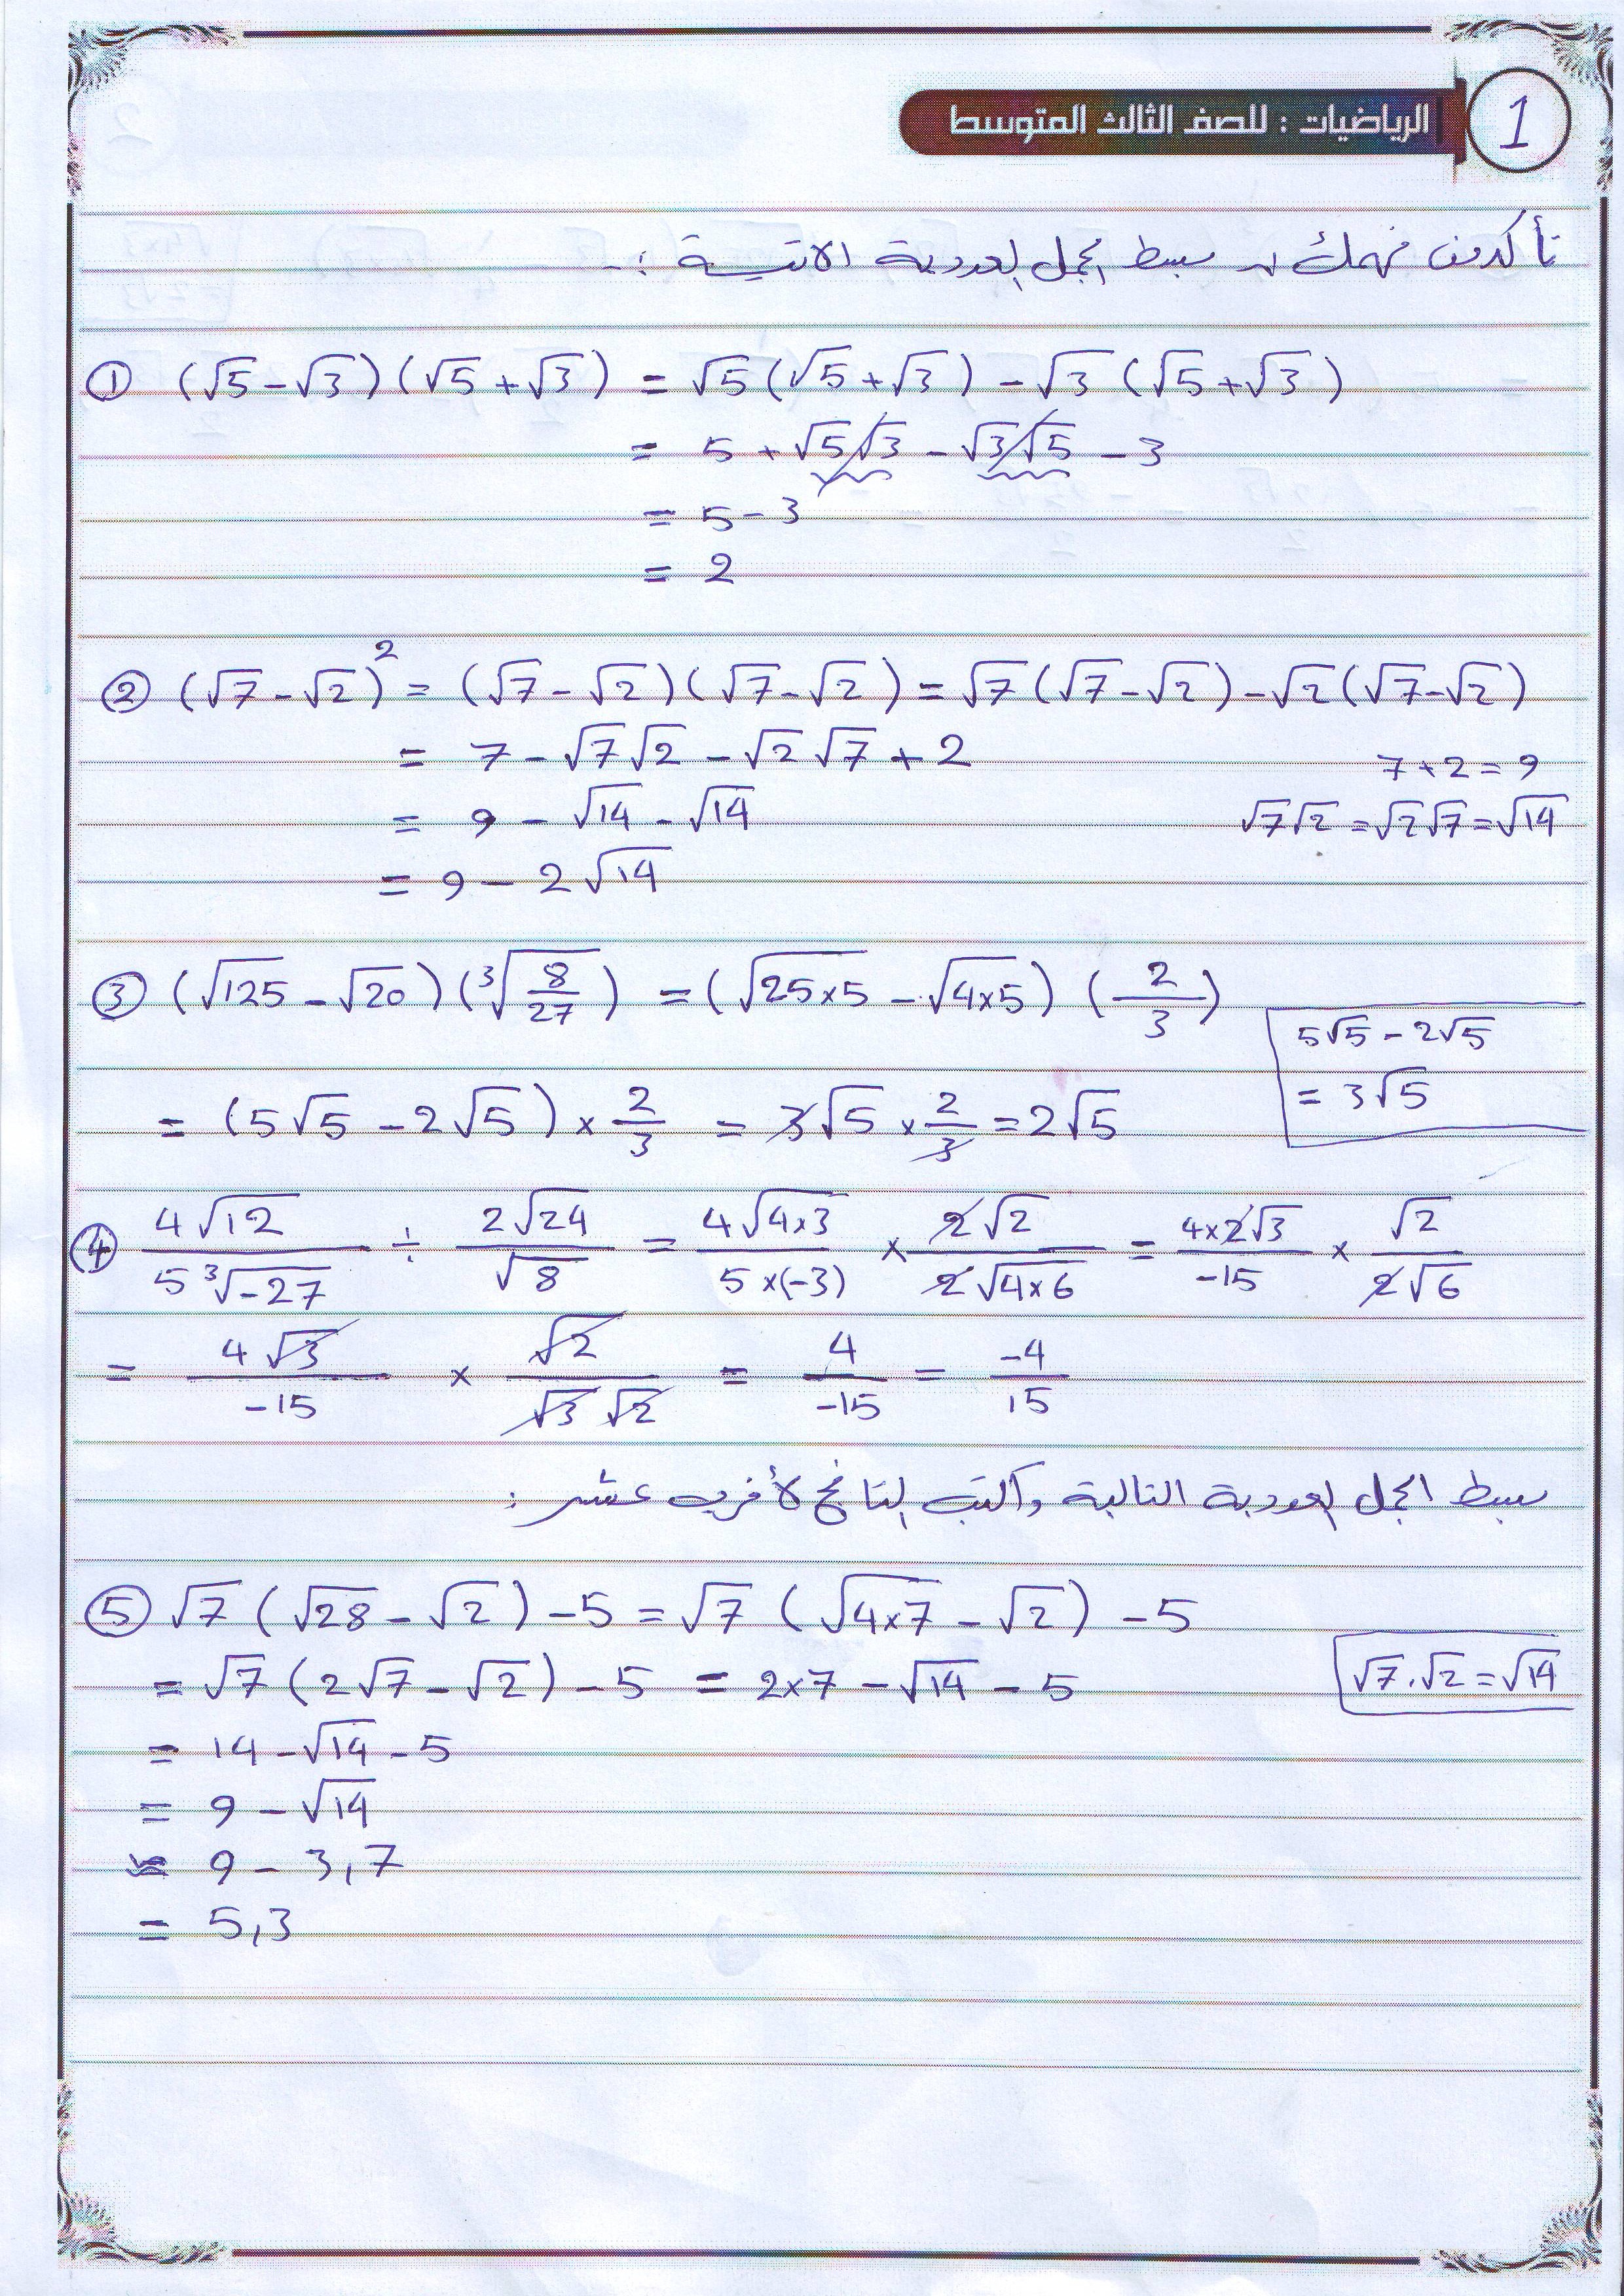 1
الرياضيات : للصف الثالث المتوسط
تأكد من فهمك / بسط الجمل العددية الاتية :-
① (√5 - √3)(√5 + √3) = √5(√5 + √3) - √3(√5 + √3)
= 5 + √5√3 - √3√5 - 3
= 5 - 3
= 2
② (√7 - √2)² = (√7 - √2)(√7 - √2) = √7(√7 - √2) - √2(√7 - √2)
= 7 - √7√2 - √2√7 + 2
7 + 2 = 9
= 9 - √14 - √14
√7√2 = √2√7 = √14
= 9 - 2√14
③ (√125 - √20)(³√(8/27)) = (√25×5 - √4×5)(2/3)
5√5 - 2√5
= 3√5
= (5√5 - 2√5) × 2/3 = 3√5 × 2/3 = 2√5
④ 4√12 / 5³√-27 ÷ 2√24 / √8 = 4√4×3 / 5×(-3) × 2√2 / 2√4×6 = 4×2√3 / -15 × √2 / 2√6
= 4√3 / -15 × √2 / √3√2 = 4 / -15 = -4 / 15
بسط الجمل العددية التالية واكتب الناتج لأقرب عشر :
⑤ √7(√28 - √2) - 5 = √7(√4×7 - √2) - 5
= √7(2√7 - √2) - 5 = 2×7 - √14 - 5
√7.√2 = √14
= 14 - √14 - 5
= 9 - √14
≈ 9 - 3,7
= 5,3